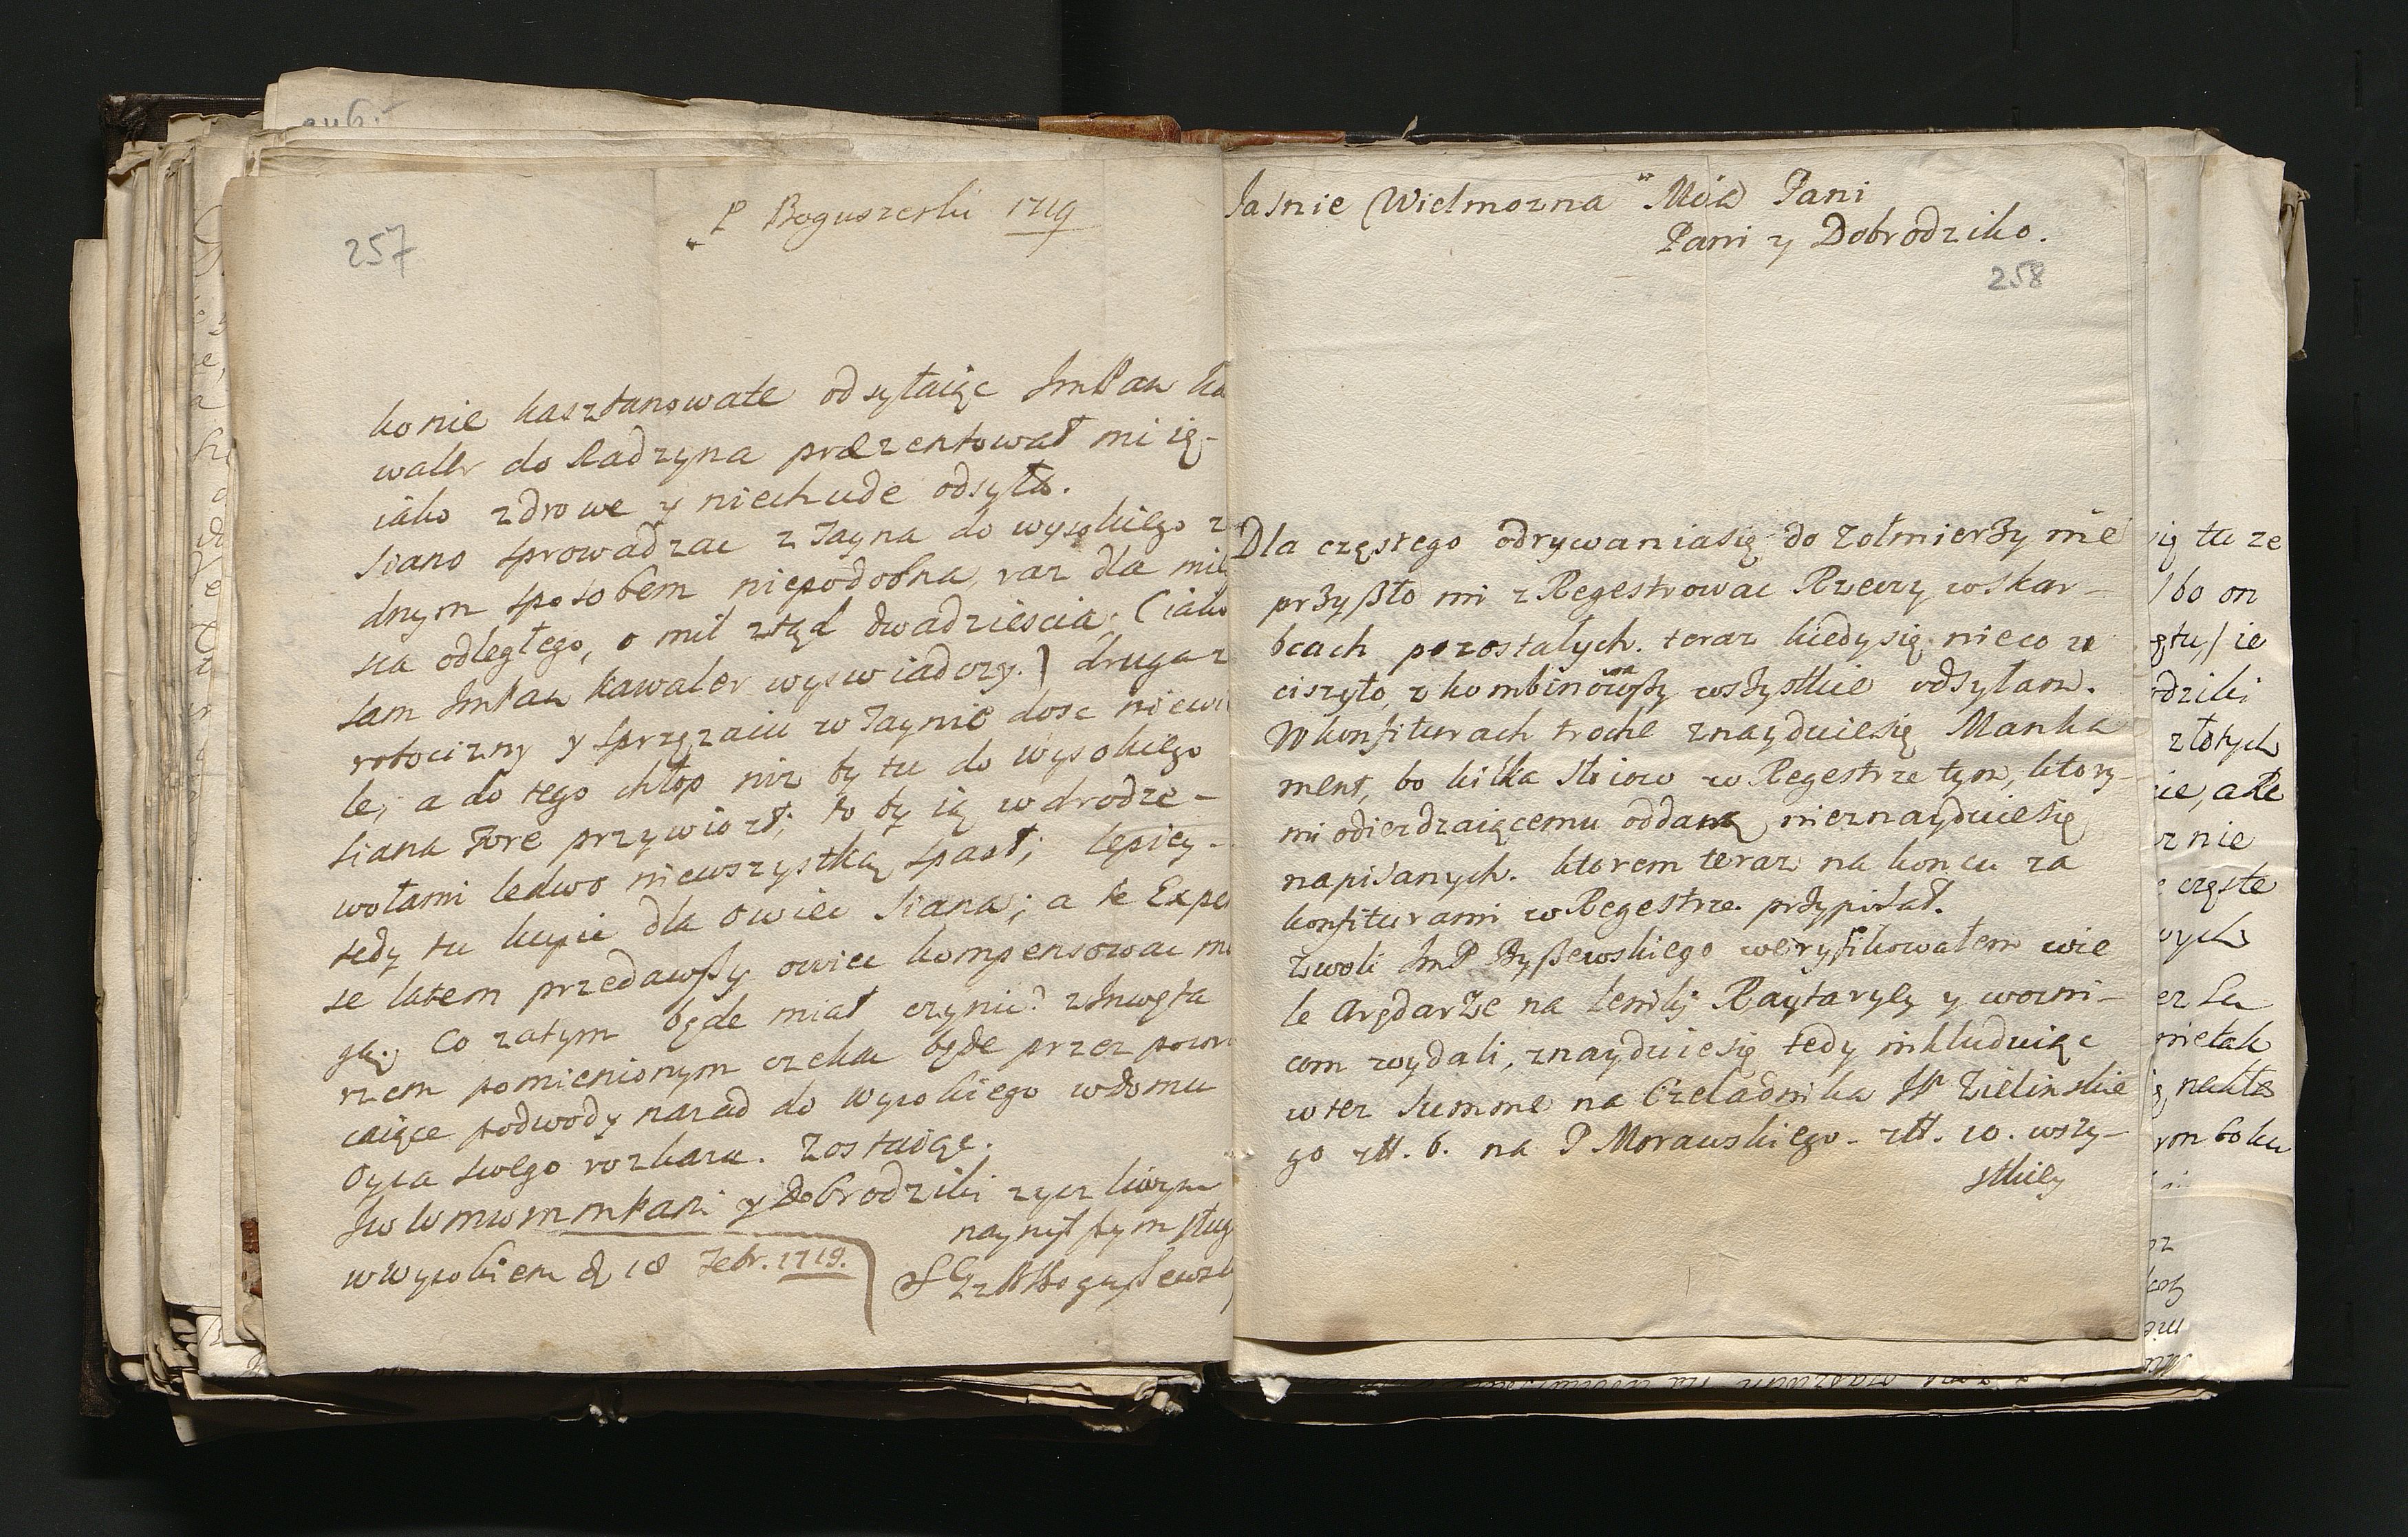 257
P Boguszerski 1719
konie kasztanowate odsyłaiąc ImPan ka
waler do Radzyna præzentował mi ię-
iako zdrowe y niechude odsyła.
siano sprowadzac z Jayna do wysokiego z
dnym sposobem niepodobna, raz dla mie
sca odległego, o mil ztąd dwadziescia, (iako
sam ImPan kawaler wyswiadczy.) druga z
robocizny y sprzęzaiu w Jaynie dosc niewie
le, a do tego chłop niz by tu do wysokiego
siana forę przywiozł, to by ią w drodze-
wołami ledwo niewszystką spasł; lepiey-
tedy tu kupić dla owiec siana; a te Expen
se latem przedawszy owiec kompensowac mo
gą. Co zatym będe miał czynic? z Inwęta
rzem pomienionym czekac będe przez powra
caiące podwody nazad do Wysokiego wdomu
Oyca swego rozkazu. Zostaiąc.
JwWmwmmPani y Dobrodziki zyczliwym
nayniszym sług
wWysokiem d 18 Febr. 1719.
Boguszewski
Jasnie Wielmozna Mca Pani
Pani y Dobrodziko.
258
Dla częstego odrywania się do Zołmierzy nie
przyszło mi z Regestrowac Rzeczy w skar-
bcach pozostałych. teraz kiedy się nieco u
ciszyło, zkombinowawszy wszystkie odsyłam.
W konfiturach troche znayduiesię Manka
ment, bo kilka słoiow w Regestrze tym, ktory-
mi odiezdzaiącemu oddaną nieznayduiesię
napisanych. ktorem teraz na koncu za
konfiturami w Regestrze przypisał.
Zwoli ImP Byszewskiego weryfikowałem wie
le Arędarze na lenniki Raytaryey y wozni-
com wydali, znayduiesię tedy inkluduiąc
w tez summe na Czeladnika JP Zielinskie
go zł. 6. na P Morawskiego. zł. 10. wszy-
stkiey
ię tu ze
bo on
ie
dziki
złotych
ie, ale
z nie
częste
wych